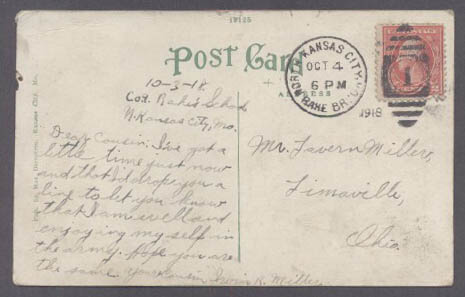 19125
Post Card
ADDRESS
NORTH KANSAS CITY, MO.
OCT 4
6 PM
RAHE BR.
1918
1
10-3-18.
Co. Rahe's School
N. Kansas City, Mo.
Dear Cousin: I've got a
little time just now
and that I'd drope you a
line to let you know
that I am well and
enjoying my self in
the army. hope you are
the same. Your Cousin Irwin R. Miller
Mr. Lavern Miller,
Limaville,
Ohio.
Kansas City, Mo.